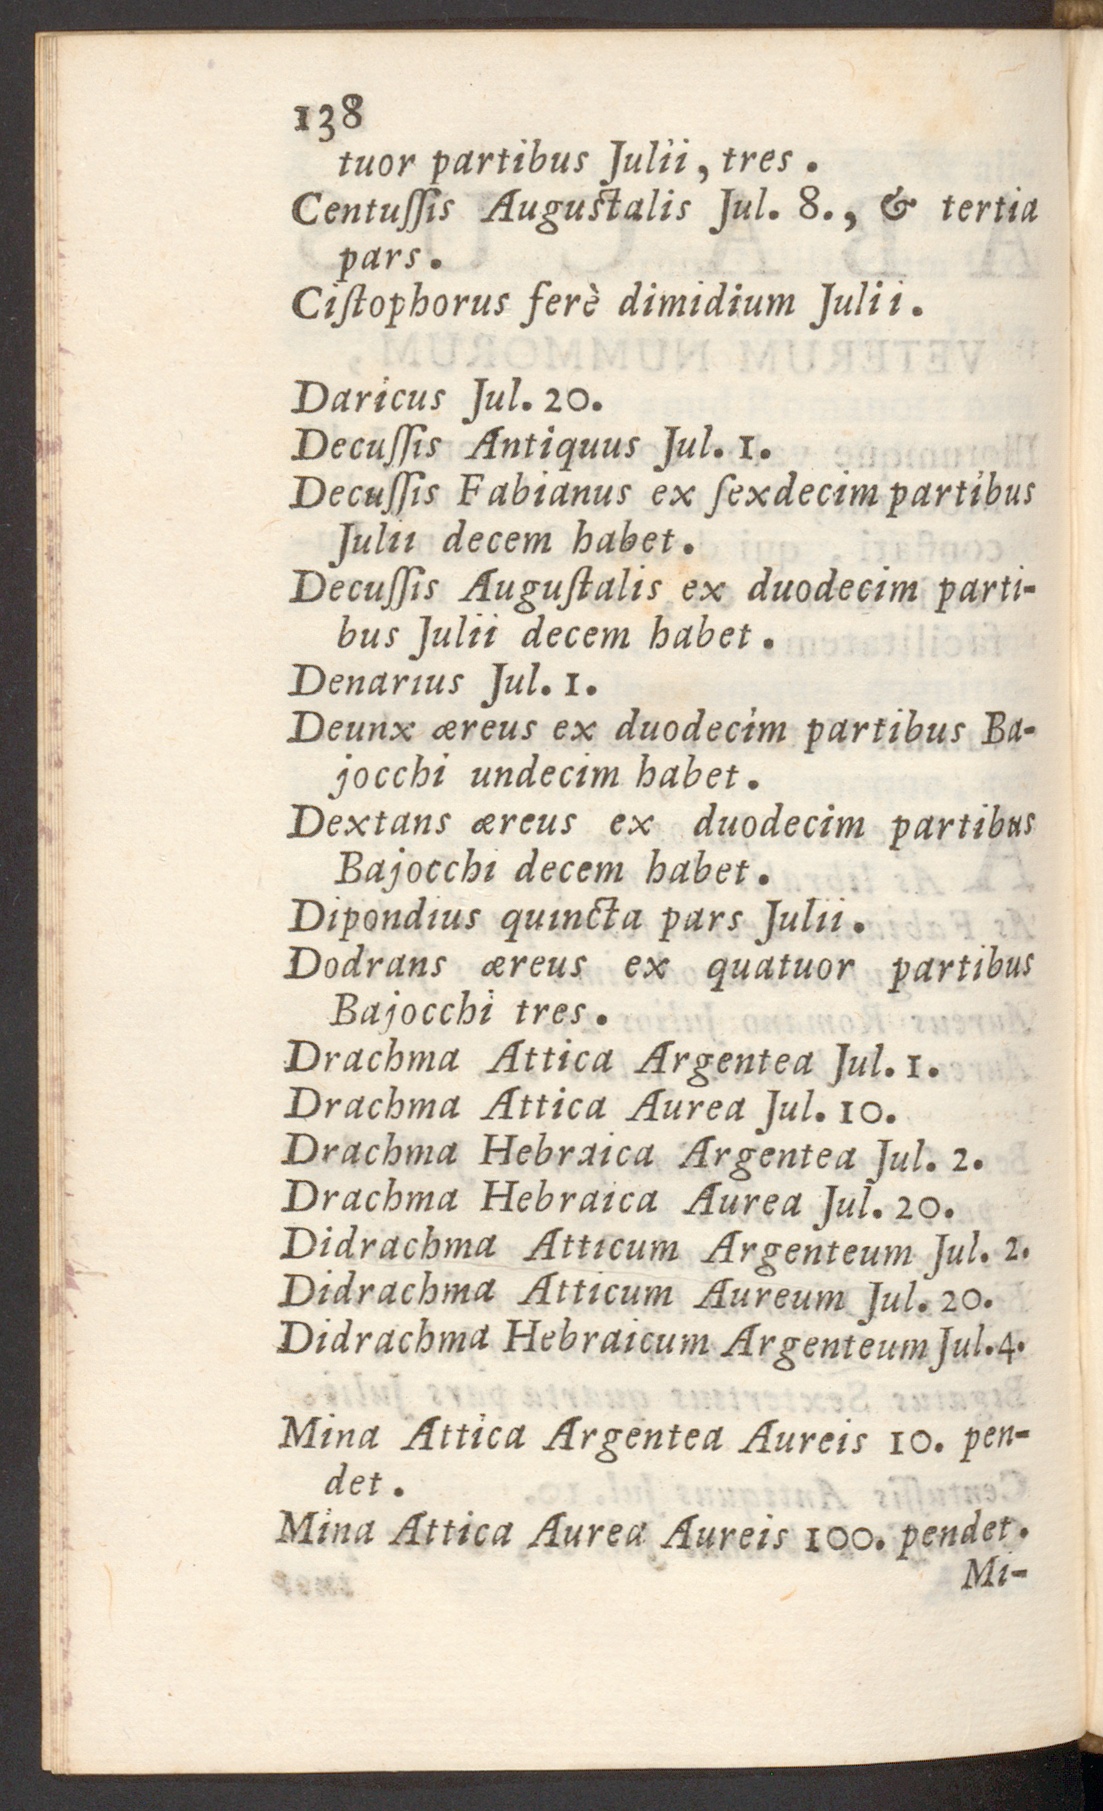 138
tuor partibus Julii, tres.
Centuſſis Auguſtalis Jul. 8., & tertia
pars.
Ciſtophorus ferè dimidium Julii.
Daricus Jul. 20.
Decuſſis Antiquus Jul. 1.
Decuſſis Fabianus ex ſexdecim partibus
Julii decem habet.
Decuſſis Auguſtalis ex duodecim parti-
bus Julii decem habet.
Denarius Jul. 1.
Deunx æreus ex duodecim partibus Ba-
jocchi undecim habet.
Dextans æreus ex duodecim partibus
Bajocchi decem habet.
Dipondius quincta pars Julii.
Dodrans æreus ex quatuor partibus
Bajocchi tres.
Drachma Attica Argentea Jul. 1.
Drachma Attica Aurea Jul. 10.
Drachma Hebraica Argentea Jul. 2.
Drachma Hebraica Aurea Jul. 20.
Didrachma Atticum Argenteum Jul. 2.
Didrachma Atticum Aureum Jul. 20.
Didrachma Hebraicum Argenteum Jul. 4.
Mina Attica Argentea Aureis 10. pen-
det.
Mina Attica Aurea Aureis 100. pendet.
Mi-